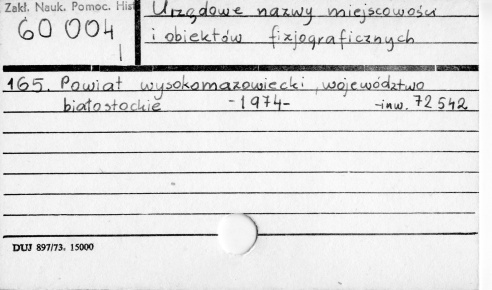 Zakł. Nauk. Pomoc. Hist
60 004
I
Urzędowe nazwy miejscowości
i obiektów fizjograficznych
165. Powiat wysokomazowiecki, województwo
białostockie -1974- -inw. 72 542
DUJ 897/73. 15000